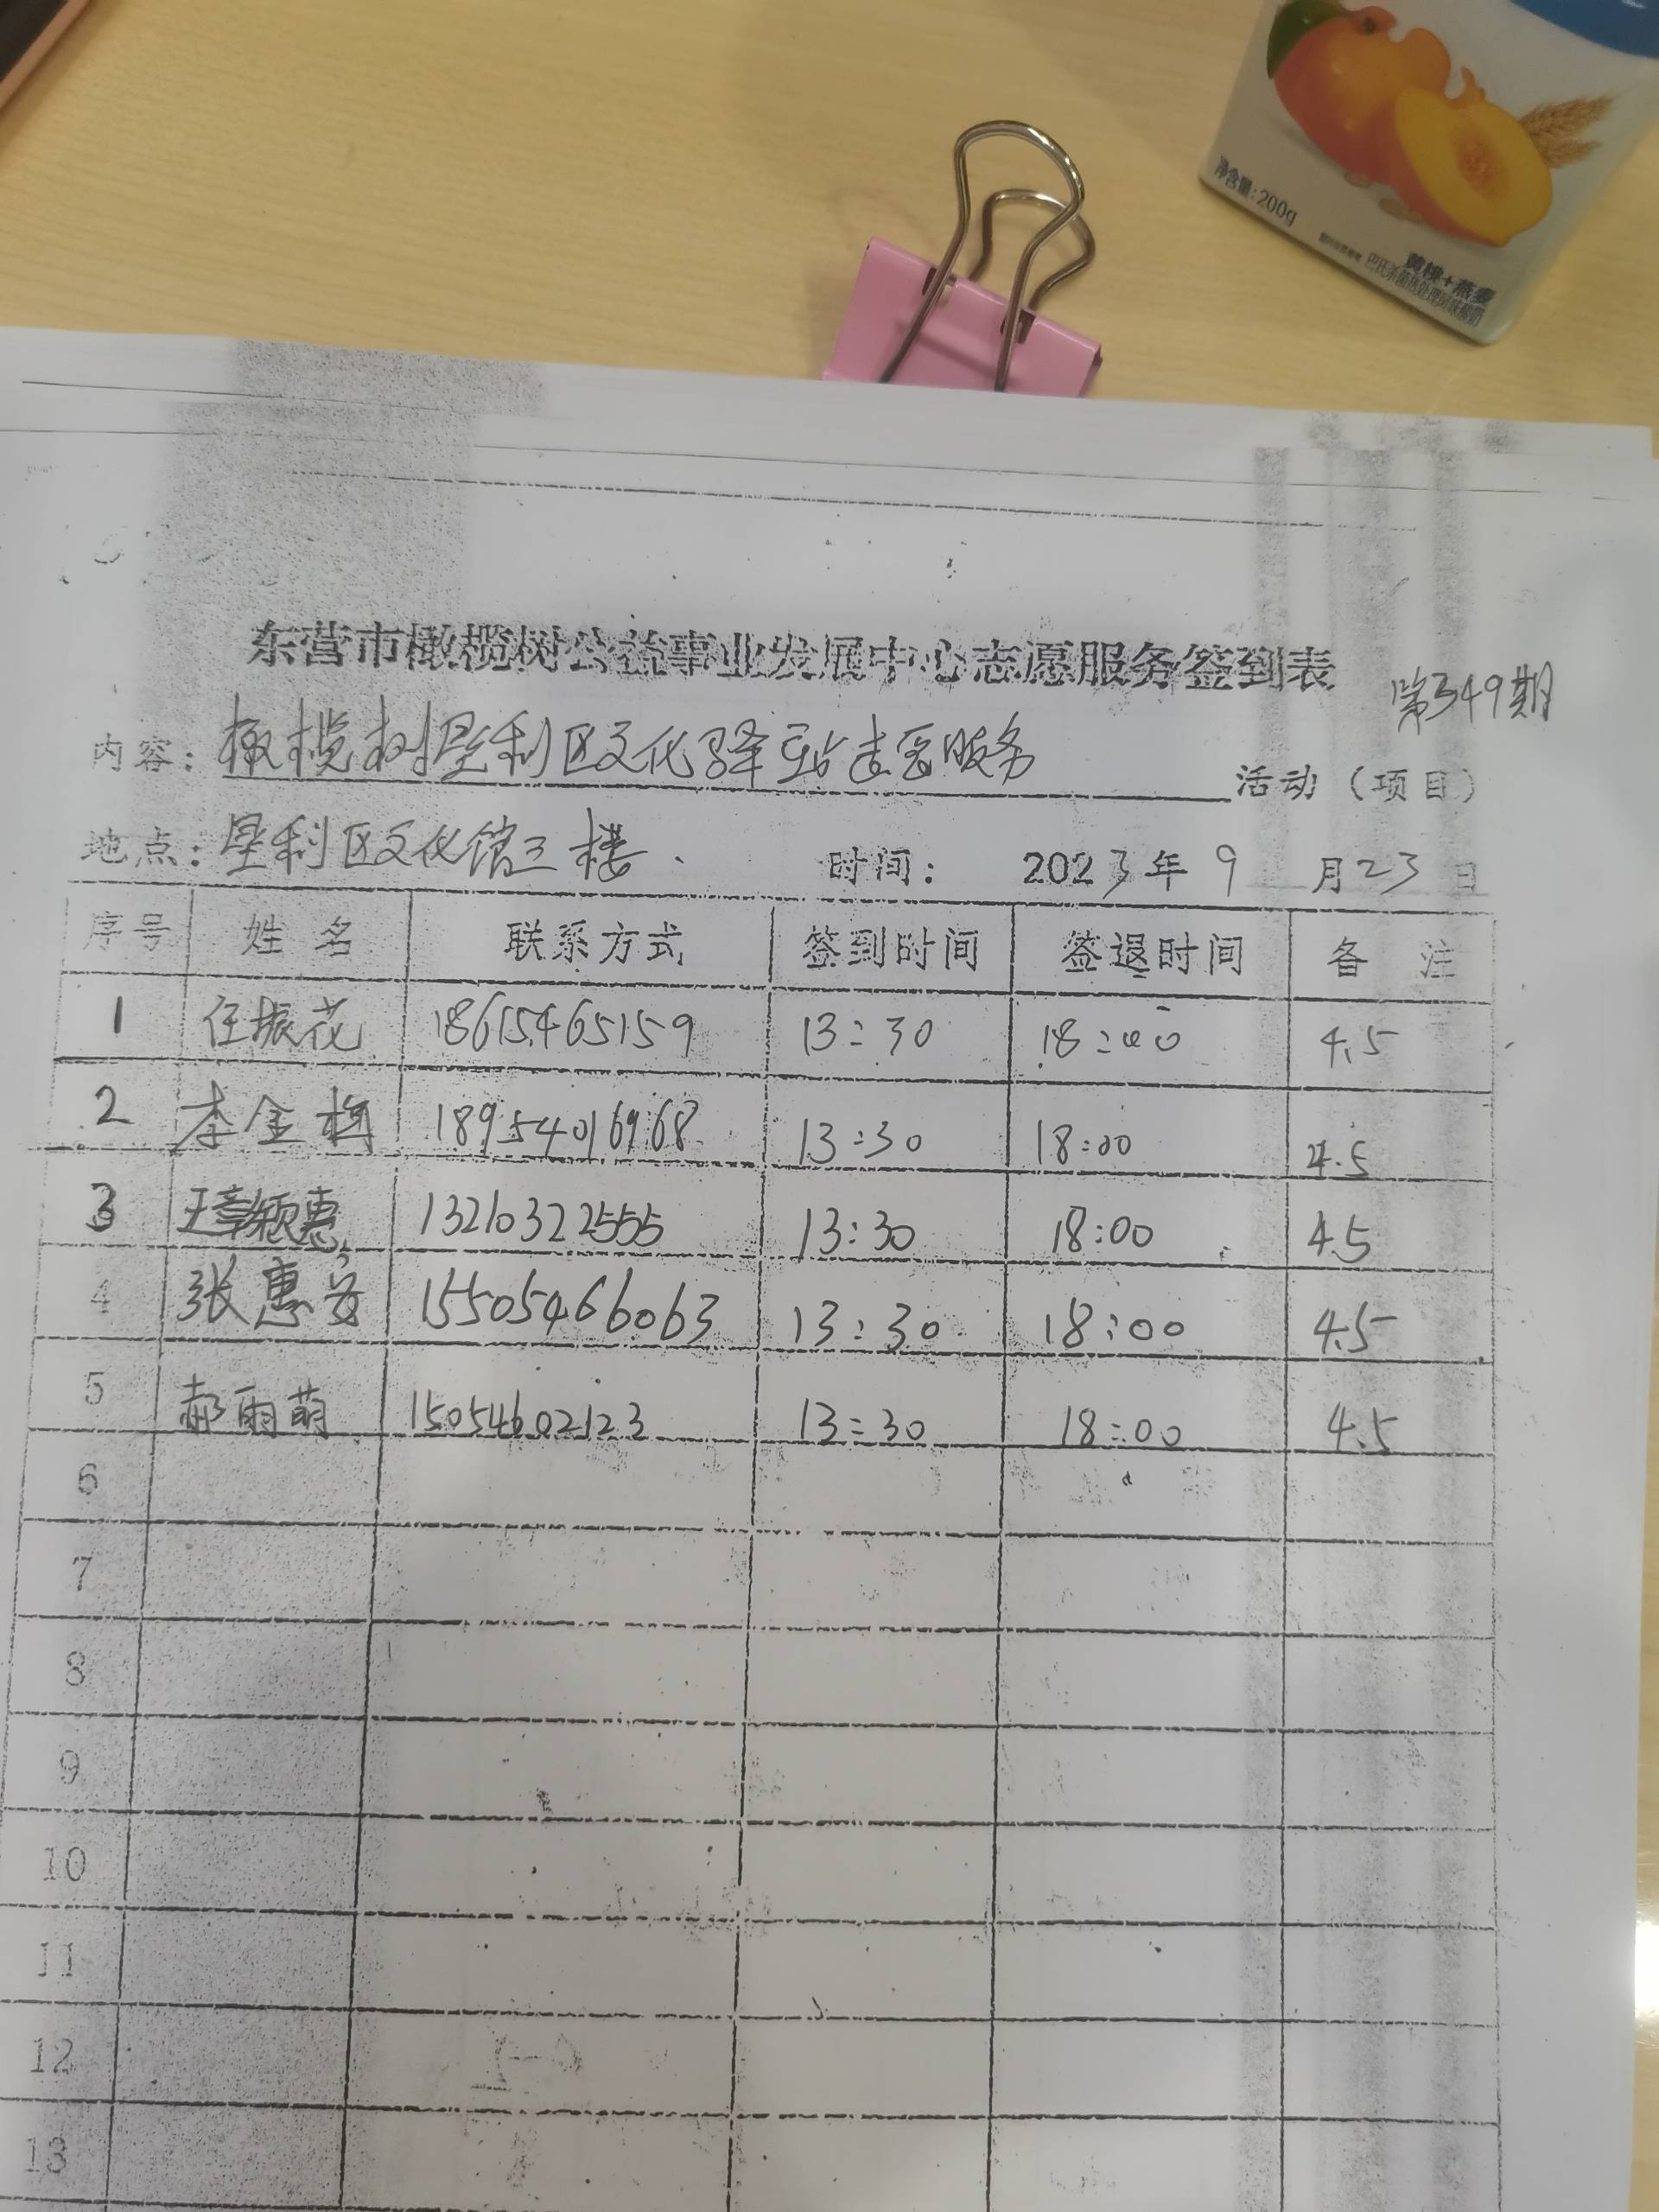 净含量:200g
黄桃+燕麦
巴氏杀菌热处理风味酸奶
东营市橄榄树公益事业发展中心志愿服务签到表
第349期
内容: 橄榄树垦利区文化驿站志愿服务 活动（项目）
地点: 垦利区文化馆三楼. 时间: 2023年9月23日
序号 姓名 联系方式 签到时间 签退时间 备注
1 任振花 18615465159 13:30 18:00 4.5
2 李金梅 18954016968 13:30 18:00 4.5
3 王颖惠 13210322555 13:30 18:00 4.5
4 张惠芳 15505466063 13:30 18:00 4.5
5 郝雨萌 15054602123 13:30 18:00 4.5
6
7
8
9
10
11
12
13